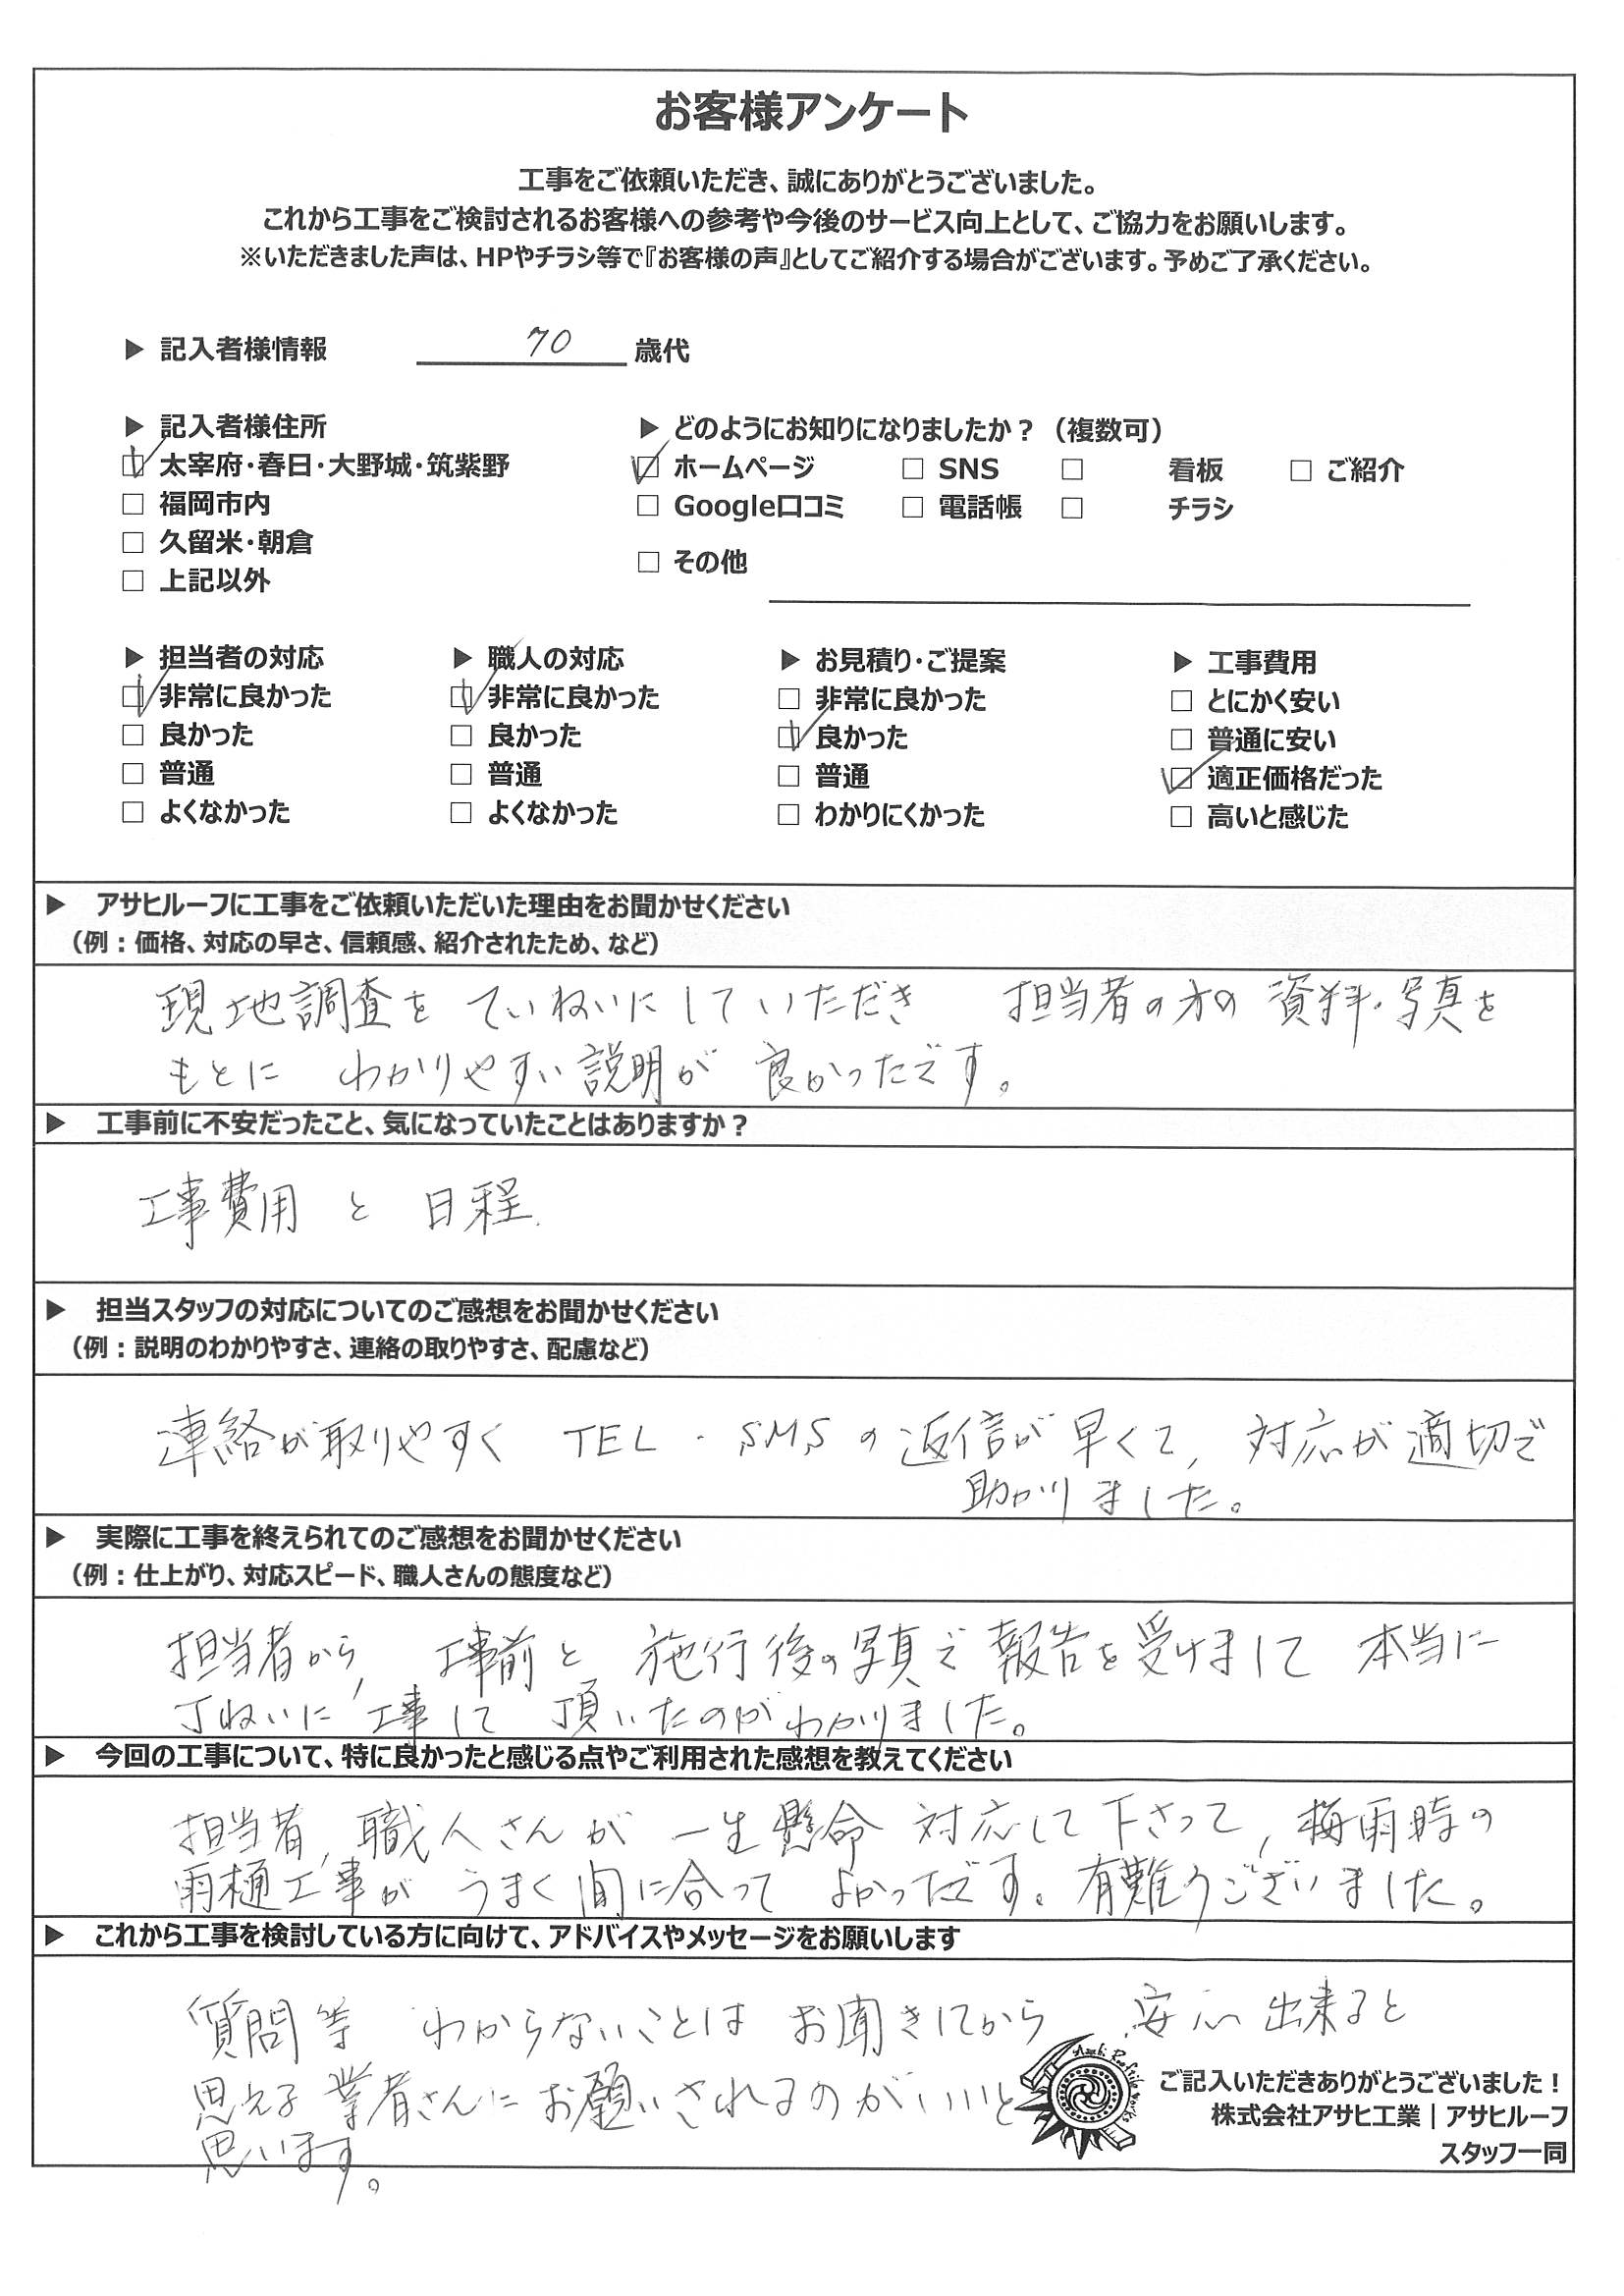 お客様アンケート
工事をご依頼いただき、誠にありがとうございました。
これから工事をご検討されるお客様への参考や今後のサービス向上として、ご協力をお願いします。
※いただきました声は、HPやチラシ等で『お客様の声』としてご紹介する場合がございます。予めご了承ください。
▶ 記入者様情報 70 歳代
▶ 記入者様住所
☑ 太宰府・春日・大野城・筑紫野
□ 福岡市内
□ 久留米・朝倉
□ 上記以外
▶ どのようにお知りになりましたか？（複数可）
☑ ホームページ □ SNS □ 看板 □ ご紹介
□ Google口コミ □ 電話帳 □ チラシ
□ その他
▶ 担当者の対応
☑ 非常に良かった
□ 良かった
□ 普通
□ よくなかった
▶ 職人の対応
☑ 非常に良かった
□ 良かった
□ 普通
□ よくなかった
▶ お見積り・ご提案
□ 非常に良かった
☑ 良かった
□ 普通
□ わかりにくかった
▶ 工事費用
□ とにかく安い
□ 普通に安い
☑ 適正価格だった
□ 高いと感じた
▶ アサヒルーフに工事をご依頼いただいた理由をお聞かせください
（例：価格、対応の早さ、信頼感、紹介されたため、など）
現地調査を ていねいにしていただき 担当者の方の 資料・写真を
もとに わかりやすい説明が 良かったです。
▶ 工事前に不安だったこと、気になっていたことはありますか？
工事費用 と 日程.
▶ 担当スタッフの対応についてのご感想をお聞かせください
（例：説明のわかりやすさ、連絡の取りやすさ、配慮など）
連絡が取りやすく TEL・SMSの返信が早くて、対応が適切で
助かりました。
▶ 実際に工事を終えられてのご感想をお聞かせください
（例：仕上がり、対応スピード、職人さんの態度など）
担当者から、工事前と 施行後の写真で報告を受けまして 本当に
丁ねいに工事して 頂いたのがわかりました。
▶ 今回の工事について、特に良かったと感じる点やご利用された感想を教えてください
担当者、職人さんが 一生懸命 対応して下さって、梅雨時の
雨樋工事が うまく間に合って よかったです。有難うございました。
▶ これから工事を検討している方に向けて、アドバイスやメッセージをお願いします
質問等 わからないことは お聞きしてから 安心出来ると
思える業者さんに お願いされるのがいいと
思います。
ご記入いただきありがとうございました！
株式会社アサヒ工業｜アサヒルーフ
スタッフ一同